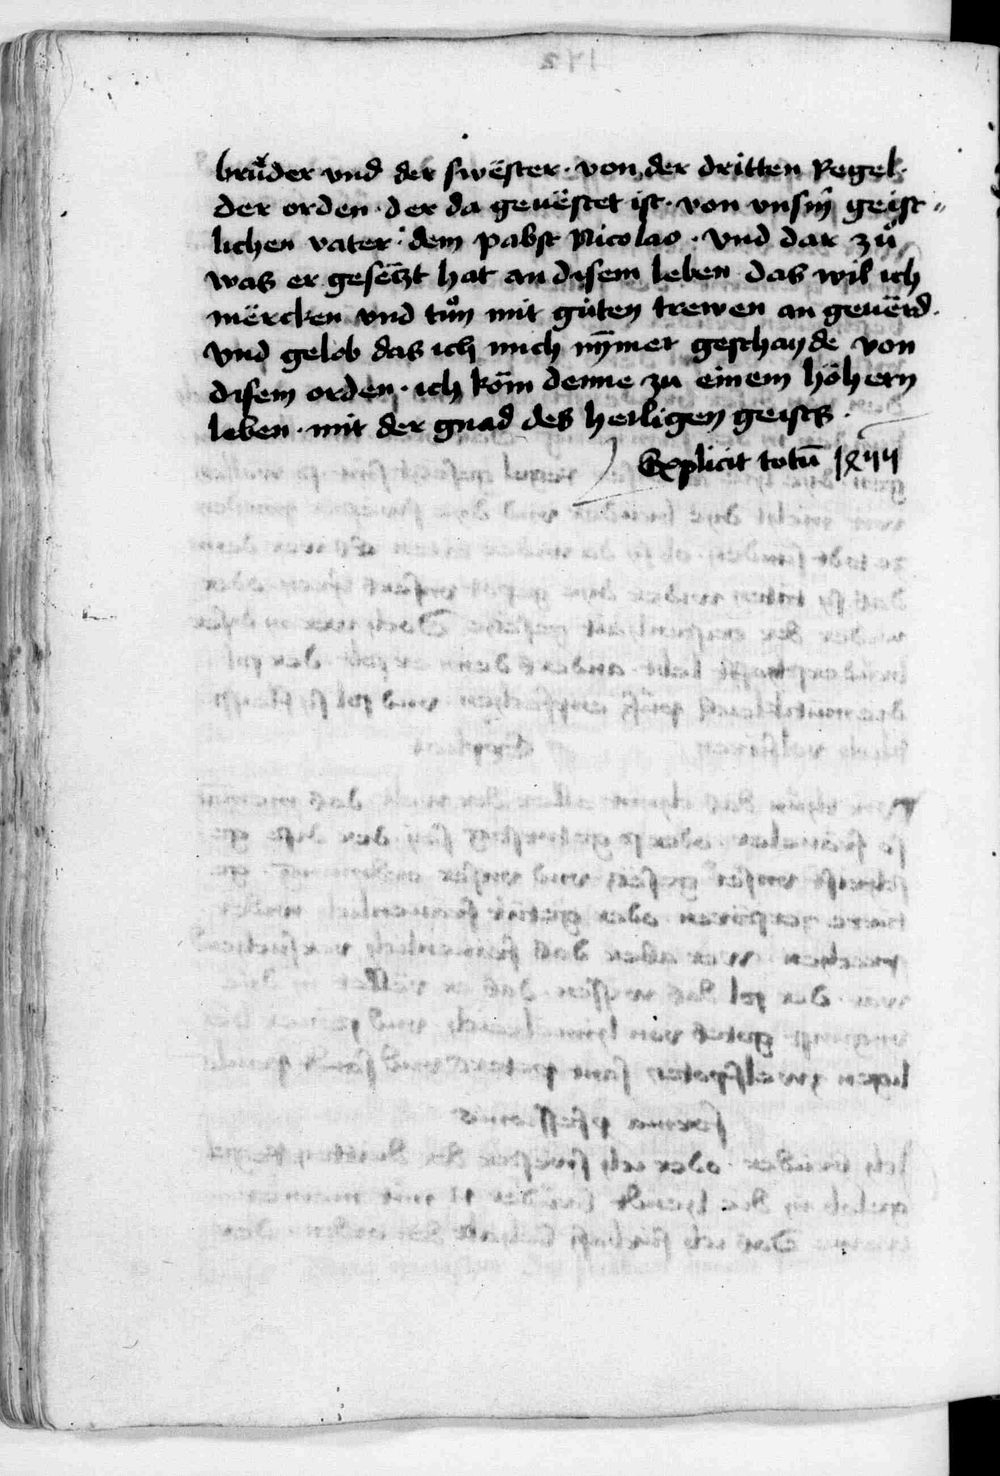 brůder vnd der swëster · von der dritten Regel ·
der orden · der da geuëstet ist · von vnsm̄ geist„
lichen vater · dem pabst Nicolao · vnd dar zů
was er gesëtzt hat an disem leben das wil ich
mërcken vnd tůn mit gůten trewen an geuërd ·
vnd gelob das ich mich nȳmer geschayde von
disem orden · ich köm denne zu einem höhern
leben · mit der gnad des heiligen geists ·
Explicit totū